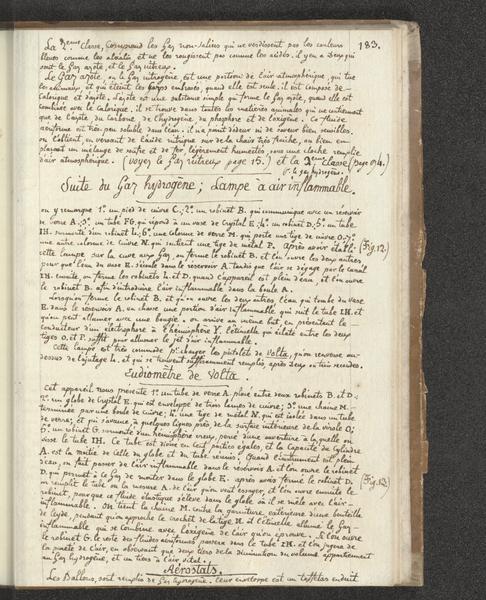 183.
La 2eme Classe, Comprend les Gaz non-Salins qui ne verdissent pas les couleurs
bleues comme les alcalis, et ne les rougissent pas comme les acides. il y en a Deux qui
sont le Gaz azote, et le Gaz nitreux.
Le Gaz azote, ou le Gaz nitrogène, est une portion de l'air atmosphérique, qui tue
les animaux, et qui éteint les corps embrasés, quand elle est seule. il est composé de
Calorique et d'azote. L'azote est une substance simple qui forme le Gaz azote, quand elle est
combinée avec le Calorique. il se trouve dans toutes les matieres animales qui ne contiennent
que de l'azote, du Carbone, de l'hydrogene, du phosphore et de l'oxigène. Ce fluide
aeriforme est très peu soluble dans l'eau. il n'a point d'odeur ni de saveur bien sensibles.
on l'obtient, en versant de l'acide nitrique sur de la chair très fraîche, ou bien en
plaçant un mélange de soufre et de fer légèrement humectés, sous une cloche remplie
d'air atmosphérique. (voyez le Gaz nitreux page 15.) et la 3eme classe (page 074.)
Suite du Gaz hydrogene; Lampe à air inflammable.
on y remarque 1.° un pied de cuivre C; 2.° un robinet B. qui communique avec un réservoir
de verre A; 3.° un tube FG. qui répond à un vase de Crystal E; 4.° un robinet D; 5.° un tube
IH. surmonté d'un robinet L; 6.° une colonne de verre M. qui porte une tige de cuivre O; 7.°
une autre colonne de cuivre N. qui soutient une tige de métal P. Après avoir établi (Fig. 12.)
cette Lampe sur la cuve aux Gaz, on ferme le robinet B. et l'on ouvre les deux autres
pour que l'eau du vase E. descende dans le reservoir A. tandis que l'air se dégage par le canal
IH. ensuite, on ferme les robinets L. et D. quand l'appareil est plein d'eau, et l'on ouvre
le robinet B. afin d'introduire l'air inflammable dans la boule A.
Lorsqu'on ferme le robinet B. et qu'on ouvre les deux autres, l'eau qui tombe du vase
E. dans le réservoir A. en chasse une portion d'air inflammable qui suit le tube IH. et
qu'on peut allumer avec une bougie. on arrive au même but, en présentant le
conducteur d'un électrophore à l'hémisphère Y. l'étincelle qui éclate entre les deux
tiges O. et P. suffit pour allumer le jet d'air inflammable.
Cette lampe est très commode pr. charger les pistolets de Volta, qu'on renverse au-
dessus de l'ajutage L. et qui se trouvent suffisamment remplis, après Deux ou trois secondes.
Eudiomètre de Volta.
Cet appareil nous présente 1.° un tube de verre A. placé entre deux robinets B. et D.;
2.° un globe de Crystal E. qui est enveloppé de trois lames de cuivre; 3.° une chaine M.
terminée par une boule de cuivre; 4.° une tige de métal N. qui est isolée dans un tube
de verre; et qui s'avance à quelques lignes près de la surface intérieure de la virole O;
5.° un robinet G. surmonté d'un hémisphère creux, percé d'une ouverture à laquelle on
visse le tube IH. Ce tube est divisé en Cent parties égales, et la capacité du Cylindre
A. est la moitié de celle du globe et du tube réunis. Quand l'instrument est plein
d'eau, on fait passer de l'air inflammable dans le réservoir A. et l'on ouvre le robinet
D. qui permet à ce gaz de monter dans le globe E. après avoir fermé le robinet D. (Fig. 52.)
on remplit le tube ou la mesure A. de l'air qu'on veut essayer, et l'on ouvre ensuite le
robinet, pour que ce fluide élastique s'élève dans le globe où il se mêle avec l'air
inflammable. on tient la chaine M. contre la garniture extérieure d'une bouteille
de leyde, pendant qu'on approche le crochet de la tige N. et l'étincelle allume le Gaz
inflammable qui se combine avec l'oxigène de l'air qu'on éprouve. si l'on ouvre
le robinet G. le reste des fluides aériformes passera dans le tube IH. et l'on jugera de
la pureté de l'air, en observant que deux tiers de la diminution du volume appartiennent
au Gaz hydrogène, et un tiers à l'air vital.
Aérostats.
Les Ballons, sont remplis de Gaz hydrogène. leur enveloppe est un taffetas enduit